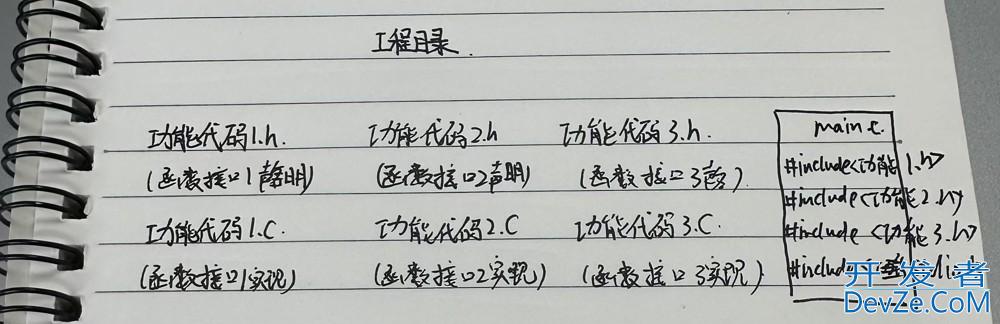 工程目录.
功能代码1.h. 功能代码2.h 功能代码3.h. main.c.
(函数接口1声明) (函数接口2声明) (函数接口3声明). #include<功能1.h>
#include<功能2.h>
功能代码1.C. 功能代码2.C 功能代码3.C. #include <功能3.h>
(函数接口1实现) (函数接口2实现) (函数接口3实现) #include
开发者
DevZe.CoM